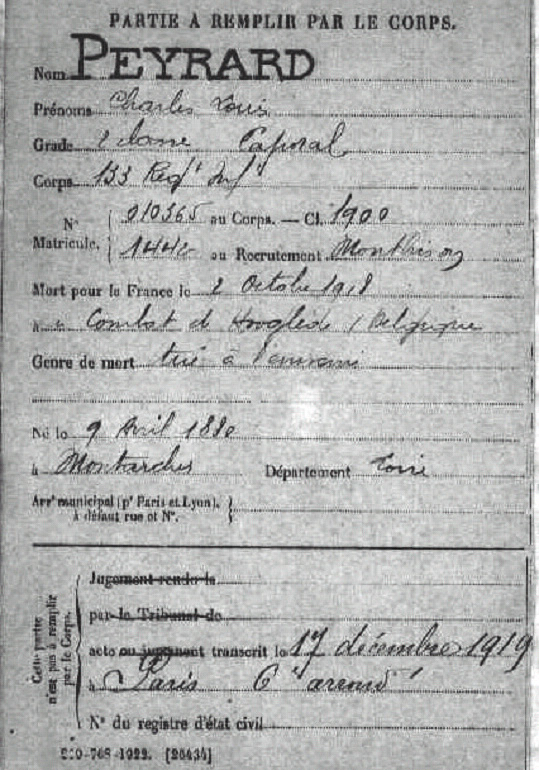 PARTIE À REMPLIR PAR LE CORPS.
Nom PEYRARD
Prénoms Charles Louis
Grade 2 classe Caporal
Corps 133 Regt Inft
N° 010365 au Corps. — Cl. 1900
Matricule. au Recrutement Montbrison
Mort pour la France le 2 Octobre 1918
à Combat d Hooglede / Belgique
Genre de mort tué à l'ennemi
Né le 9 Avril 1880
à Département Loire
Arrt municipal (pr Paris et Lyon),
à défaut rue et N°.
Cette partie
n'est pas à remplir
par le Corps.
Jugement rendu le
par le Tribunal de
acte ou jugement transcrit le 17 décembre 1919
à Paris 6e arrond
N° du registre d'état civil
-708-1922. [26434]